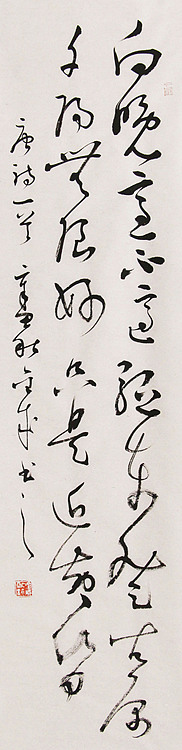 向晚意不適驅車登古原
夕陽無限好只是近黃昏
唐詩一首 秋 書之